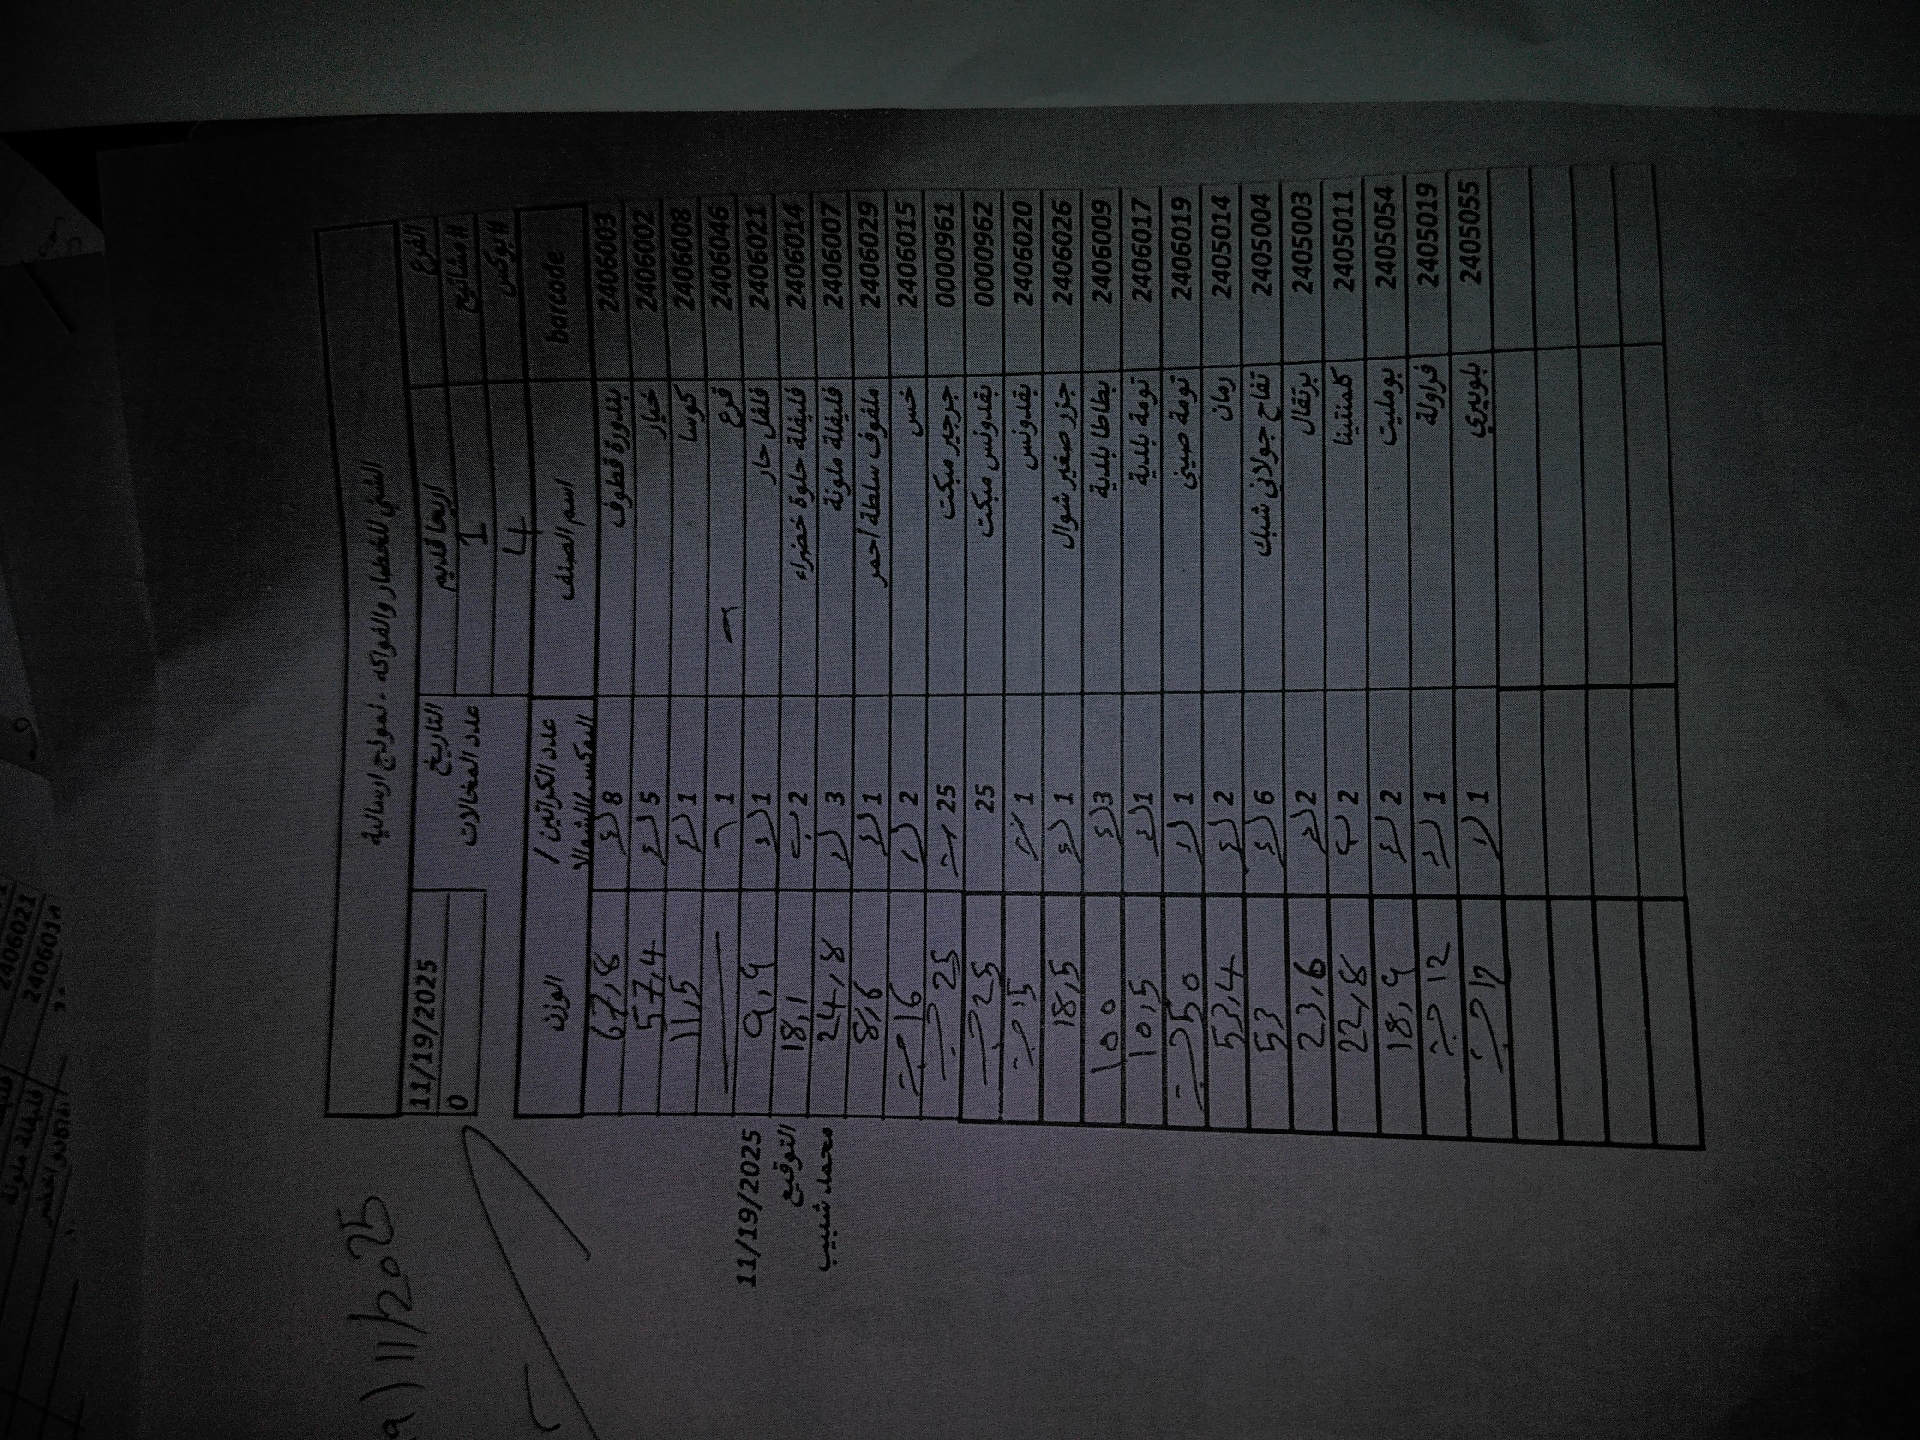 الشني للخضار والفواكه - نموذج ارسالية
الفرع اريحا قديم التاريخ 11/19/2025
# مشاتيح 1 عدد المخالات 0
# بوكس 4
barcode اسم الصنف عدد الكراتين / البوكس/الشوالات الوزن
2406003 بندورة قطوف 8 67,8
2406002 خيار 5 57,4
2406008 كوسا 1 11,5
2406046 قرع 1
2406021 فلفل حار 1 9,9
2406014 فليفلة حلوة خضراء 2 ب 18,1
2406007 فليفلة ملونة 3 24,8
2406029 ملفوف سلطة احمر 1 8,6
2406015 خس 2 16
00000961 جرجير مبكت 25 25
00000962 بقدونس مبكت 25 25
2406020 بقدونس 1 15
2406026 جزر صغير شوال 1 18,5
2406009 بطاطا بلدية 3 100
2406017 تومة بلدية 1 10,5
2406019 تومة صيني 1 250
2405014 رمان 2 53,4
2405004 تفاح جولاني شبك 6 53
2405003 برتقال 2 23,6
2405011 كلمنتينا 2 ب 22,8
2405054 بومليت 2 18,9
2405019 فراولة 1 12
2405055 بلوبيري 1 12
11/19/2025
التوقيع
محمد شبيب
11/2025
2406021